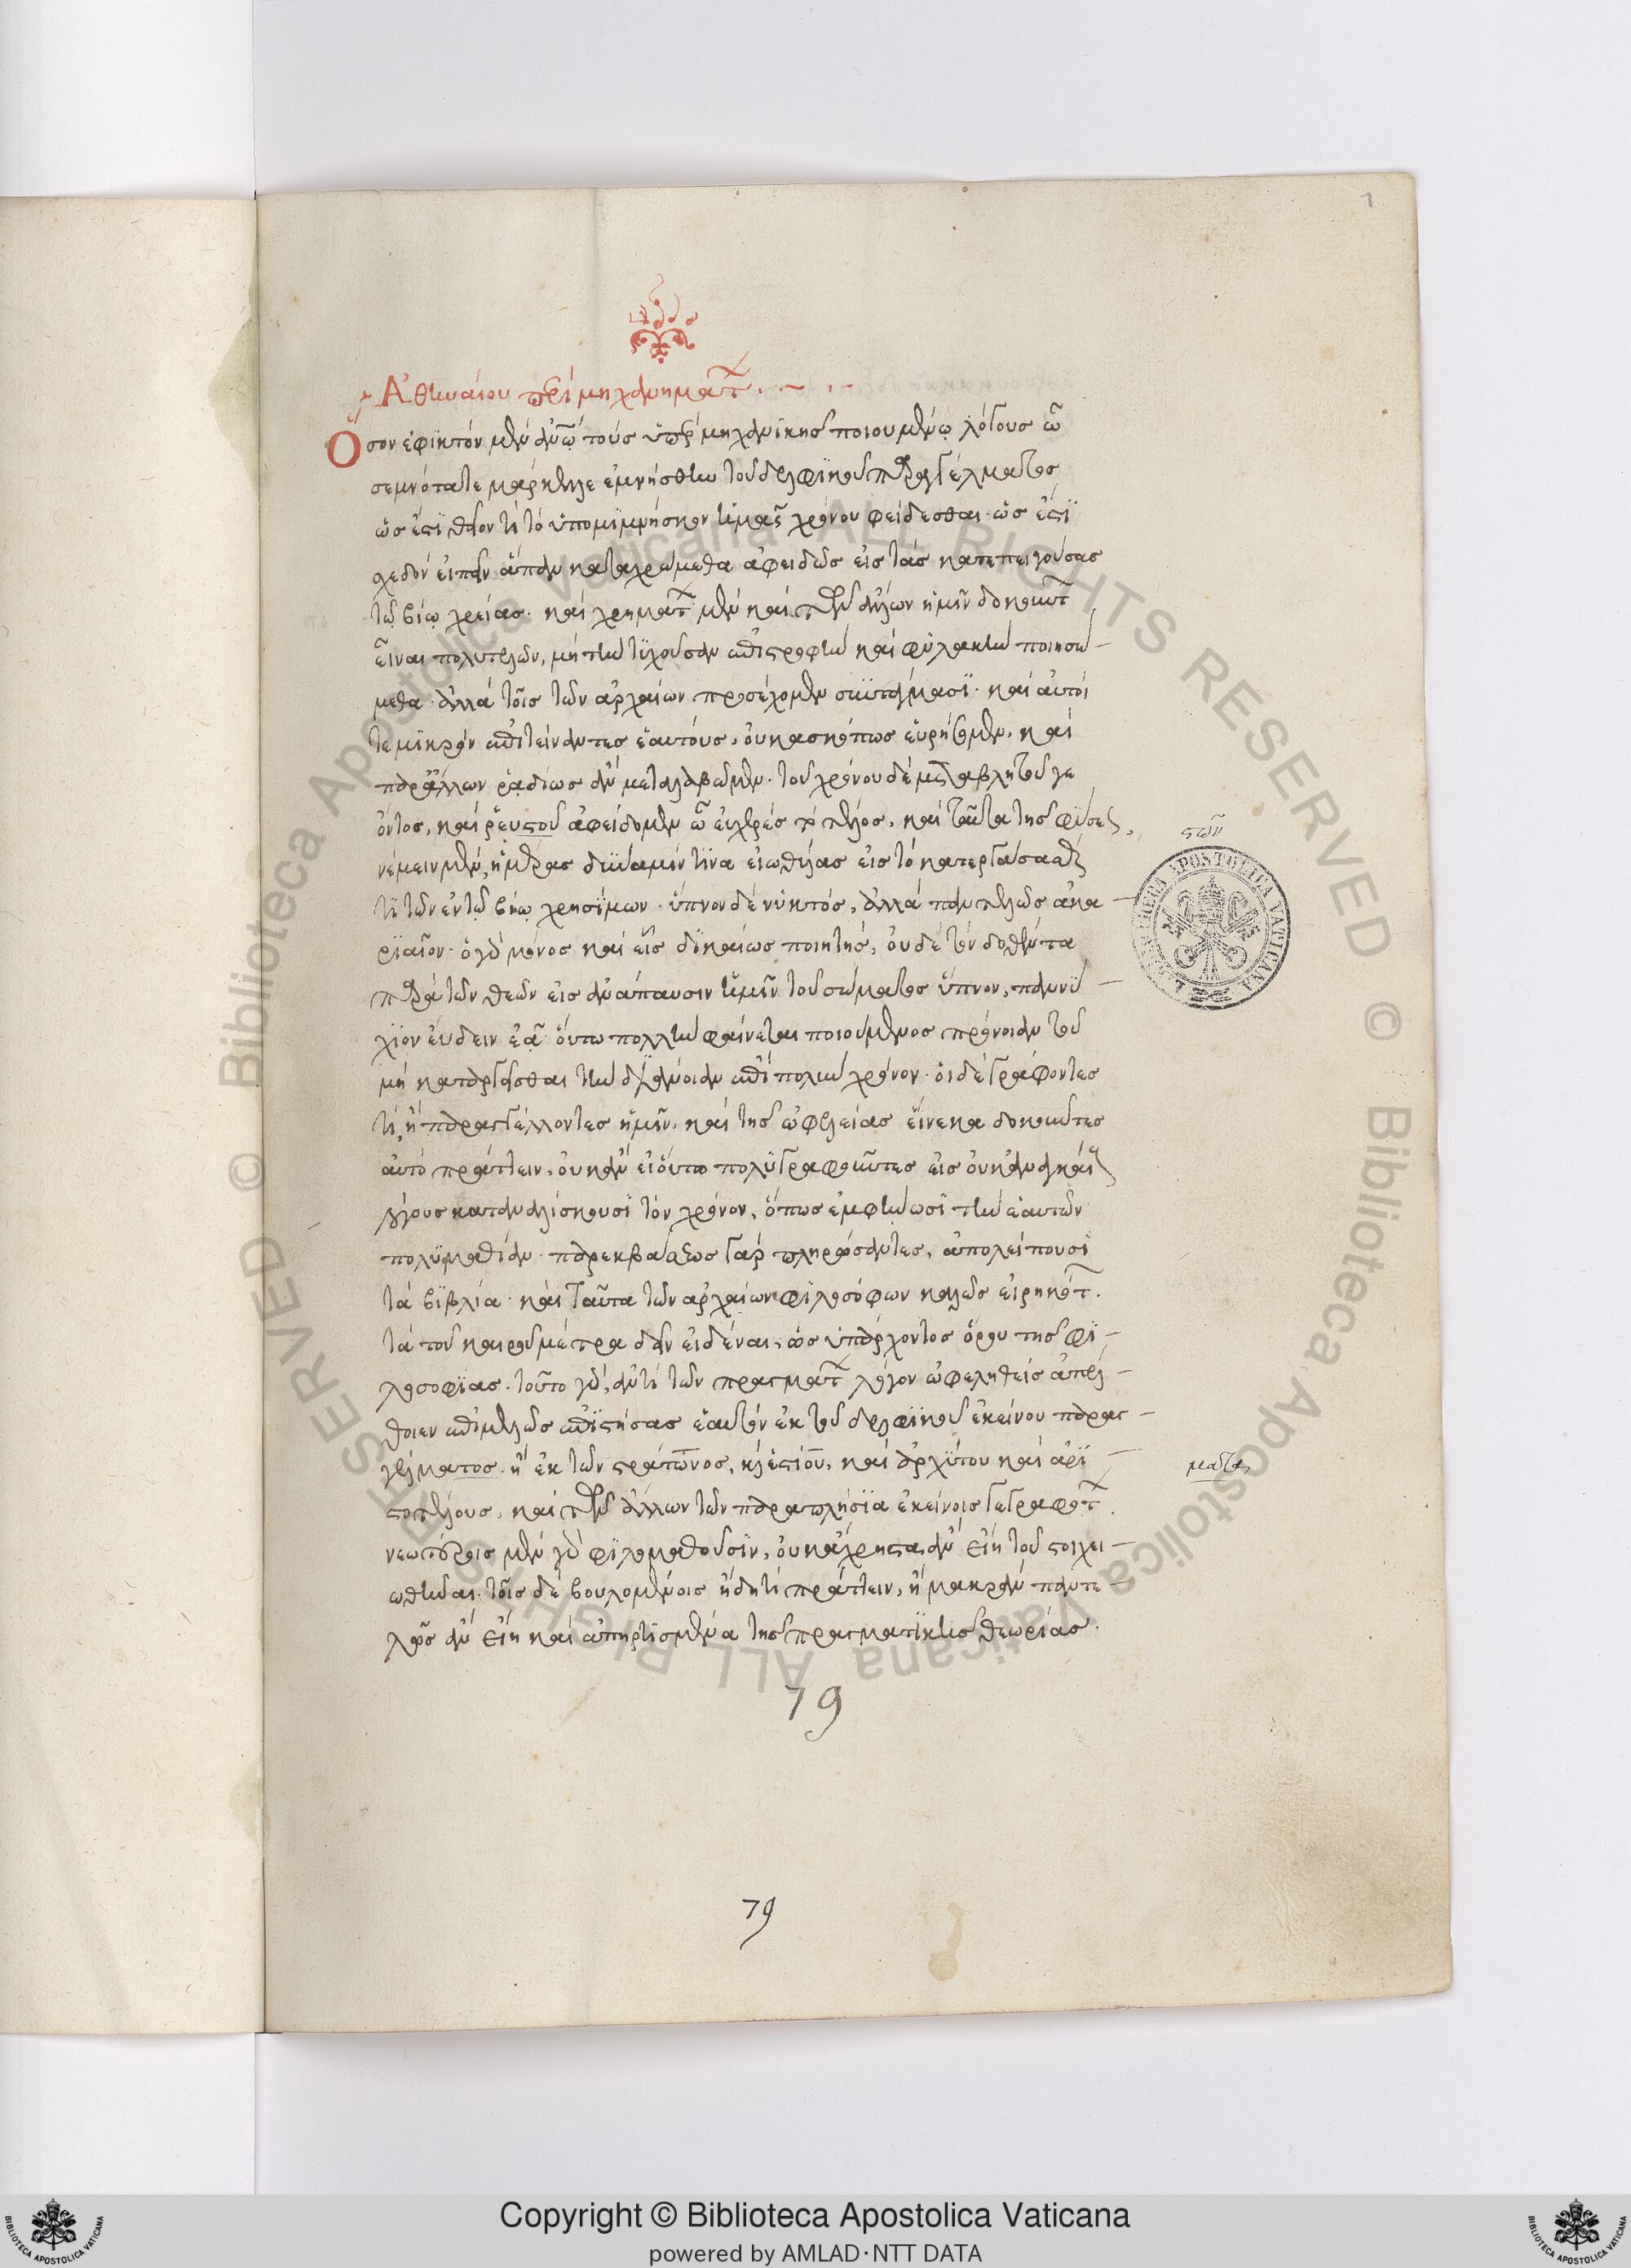 1
Ἀθηναίου περὶ μηχανημάτων
Ὅσον ἐφικτὸν μὲν ἀνῶ τοὺς ὑπὲρ μηχανικῆς ποιουμένῳ λόγους ὦ
σεμνότατε μάρκελλε ἐμνήσθην τοῦ δελφικοῦ παραγγέλματος
ὡς ἔστι θεῖόν τι τὸ ὑπομιμνῆσκον ἡμᾶς χρόνου φείδεσθαι· ὡς ἔστι
σχεδὸν εἰπεῖν ἅπαν καταχρώμεθα ἀφειδῶς εἰς τὰς κατεπειγούσας
τῷ βίῳ χρείας· καὶ χρημάτων μὲν καὶ τῶν ἄλλων ἡμῖν δοκούντων
εἶναι πολυτελῶν, μὴ τὴν τυχοῦσαν ἐπιστροφὴν καὶ φυλακὴν ποιησώ-
μεθα· ἀλλὰ τοῖς τῶν ἀρχαίων προσέχομεν συντάγμασι· καὶ αὐτοί
τε μικρὸν ἐπιτείναντες ἑαυτούς, οὐκ ἀσκόπως εὑρήσομεν, καὶ
παρ' ἄλλων ῥᾳδίως ἂν μεταλάβωμεν· τοῦ χρόνου δὲ μεταβλητοῦ γε
ὄντος, καὶ ῥευστοῦ ἀφείδομεν ὦ εὐχερὲς τὸ τέλος, καὶ ταῦτα τῆς φύσεως,
νέμειν μὲν, ἡμέρας δύναμίν τινα εἰωθυίας εἰς τὸ κατεργάσασθαι
τι τῶν ἐν τῷ βίῳ χρησίμων· ὕπνον δὲ νυκτός, ἀλλὰ παντελῶς ἀκα-
ριαῖον· ὁ γοῦν μόνος καὶ εἷς δικαίως ποιητής, οὐδὲ τὸν δοθέντα
παρὰ τῶν θεῶν εἰς ἀνάπαυσιν ἡμῖν τοῦ σώματος ὕπνον, παννύ-
χιον εὕδειν ἐᾷ· οὕτω πολλὴν φαίνεται ποιούμενος πρόνοιαν τοῦ
μὴ καταργεῖσθαι τὴν διάνοιαν ἐπὶ πολὺν χρόνον· οἱ δὲ γράφοντές
τι, ἢ παραγγέλλοντες ἡμῖν, καὶ τῆς ὠφελείας εἵνεκα δοκοῦντες
αὐτὸ πράττειν, οὐκ ἂν εἰ οὕτω πολυγραφοῦντες εἰς οὐκ ἀναγκαίους
λόγους καταναλίσκουσι τὸν χρόνον, ὅπως ἐμφήνωσι τὴν ἑαυτῶν
πολυμαθίαν· παρεκβάσεως γὰρ πληρώσαντες, ἀπολείπουσι
τὰ βιβλία· καὶ ταῦτα τῶν ἀρχαίων φιλοσόφων καλῶς εἰρηκότων.
τὰ τοῦ καιροῦ μέτρα δεῖν εἰδέναι, ὡς ὑπάρχοντος ὅρου τῆς φι-
λοσοφίας. τοῦτο γοῦν, ἀντὶ τῶν πραγμάτων λόγον ὠφεληθεὶς ἀπέλ-
θοιεν ἐπιμελῶς ἐπιστήσας ἑαυτὸν ἐκ τοῦ δελφικοῦ ἐκείνου παραγ-
γέλματος, ἢ ἐκ τῶν στράτωνος, κ' ἑστίου, καὶ ἀρχύτου καὶ ἀρι-
στοτέλους, καὶ τῶν ἄλλων τῶν παραπλήσια ἐκείνοις γεγραφότων.
νεωτέροις μὲν γοῦν φιλομαθοῦσιν, οὐκ ἄχρηστα ἂν εἴη τοῦ στοιχει-
ωθῆναι· τοῖς δὲ βουλομένοις ἤδη τι πράττειν, ἢ μακρὰν παντε-
λῶς ἂν εἴη καὶ ἀπηρτισμένα τῆς πραγματικῆς θεωρίας.
79
79
Copyright © Biblioteca Apostolica Vaticana
powered by AMLAD·NTT DATA